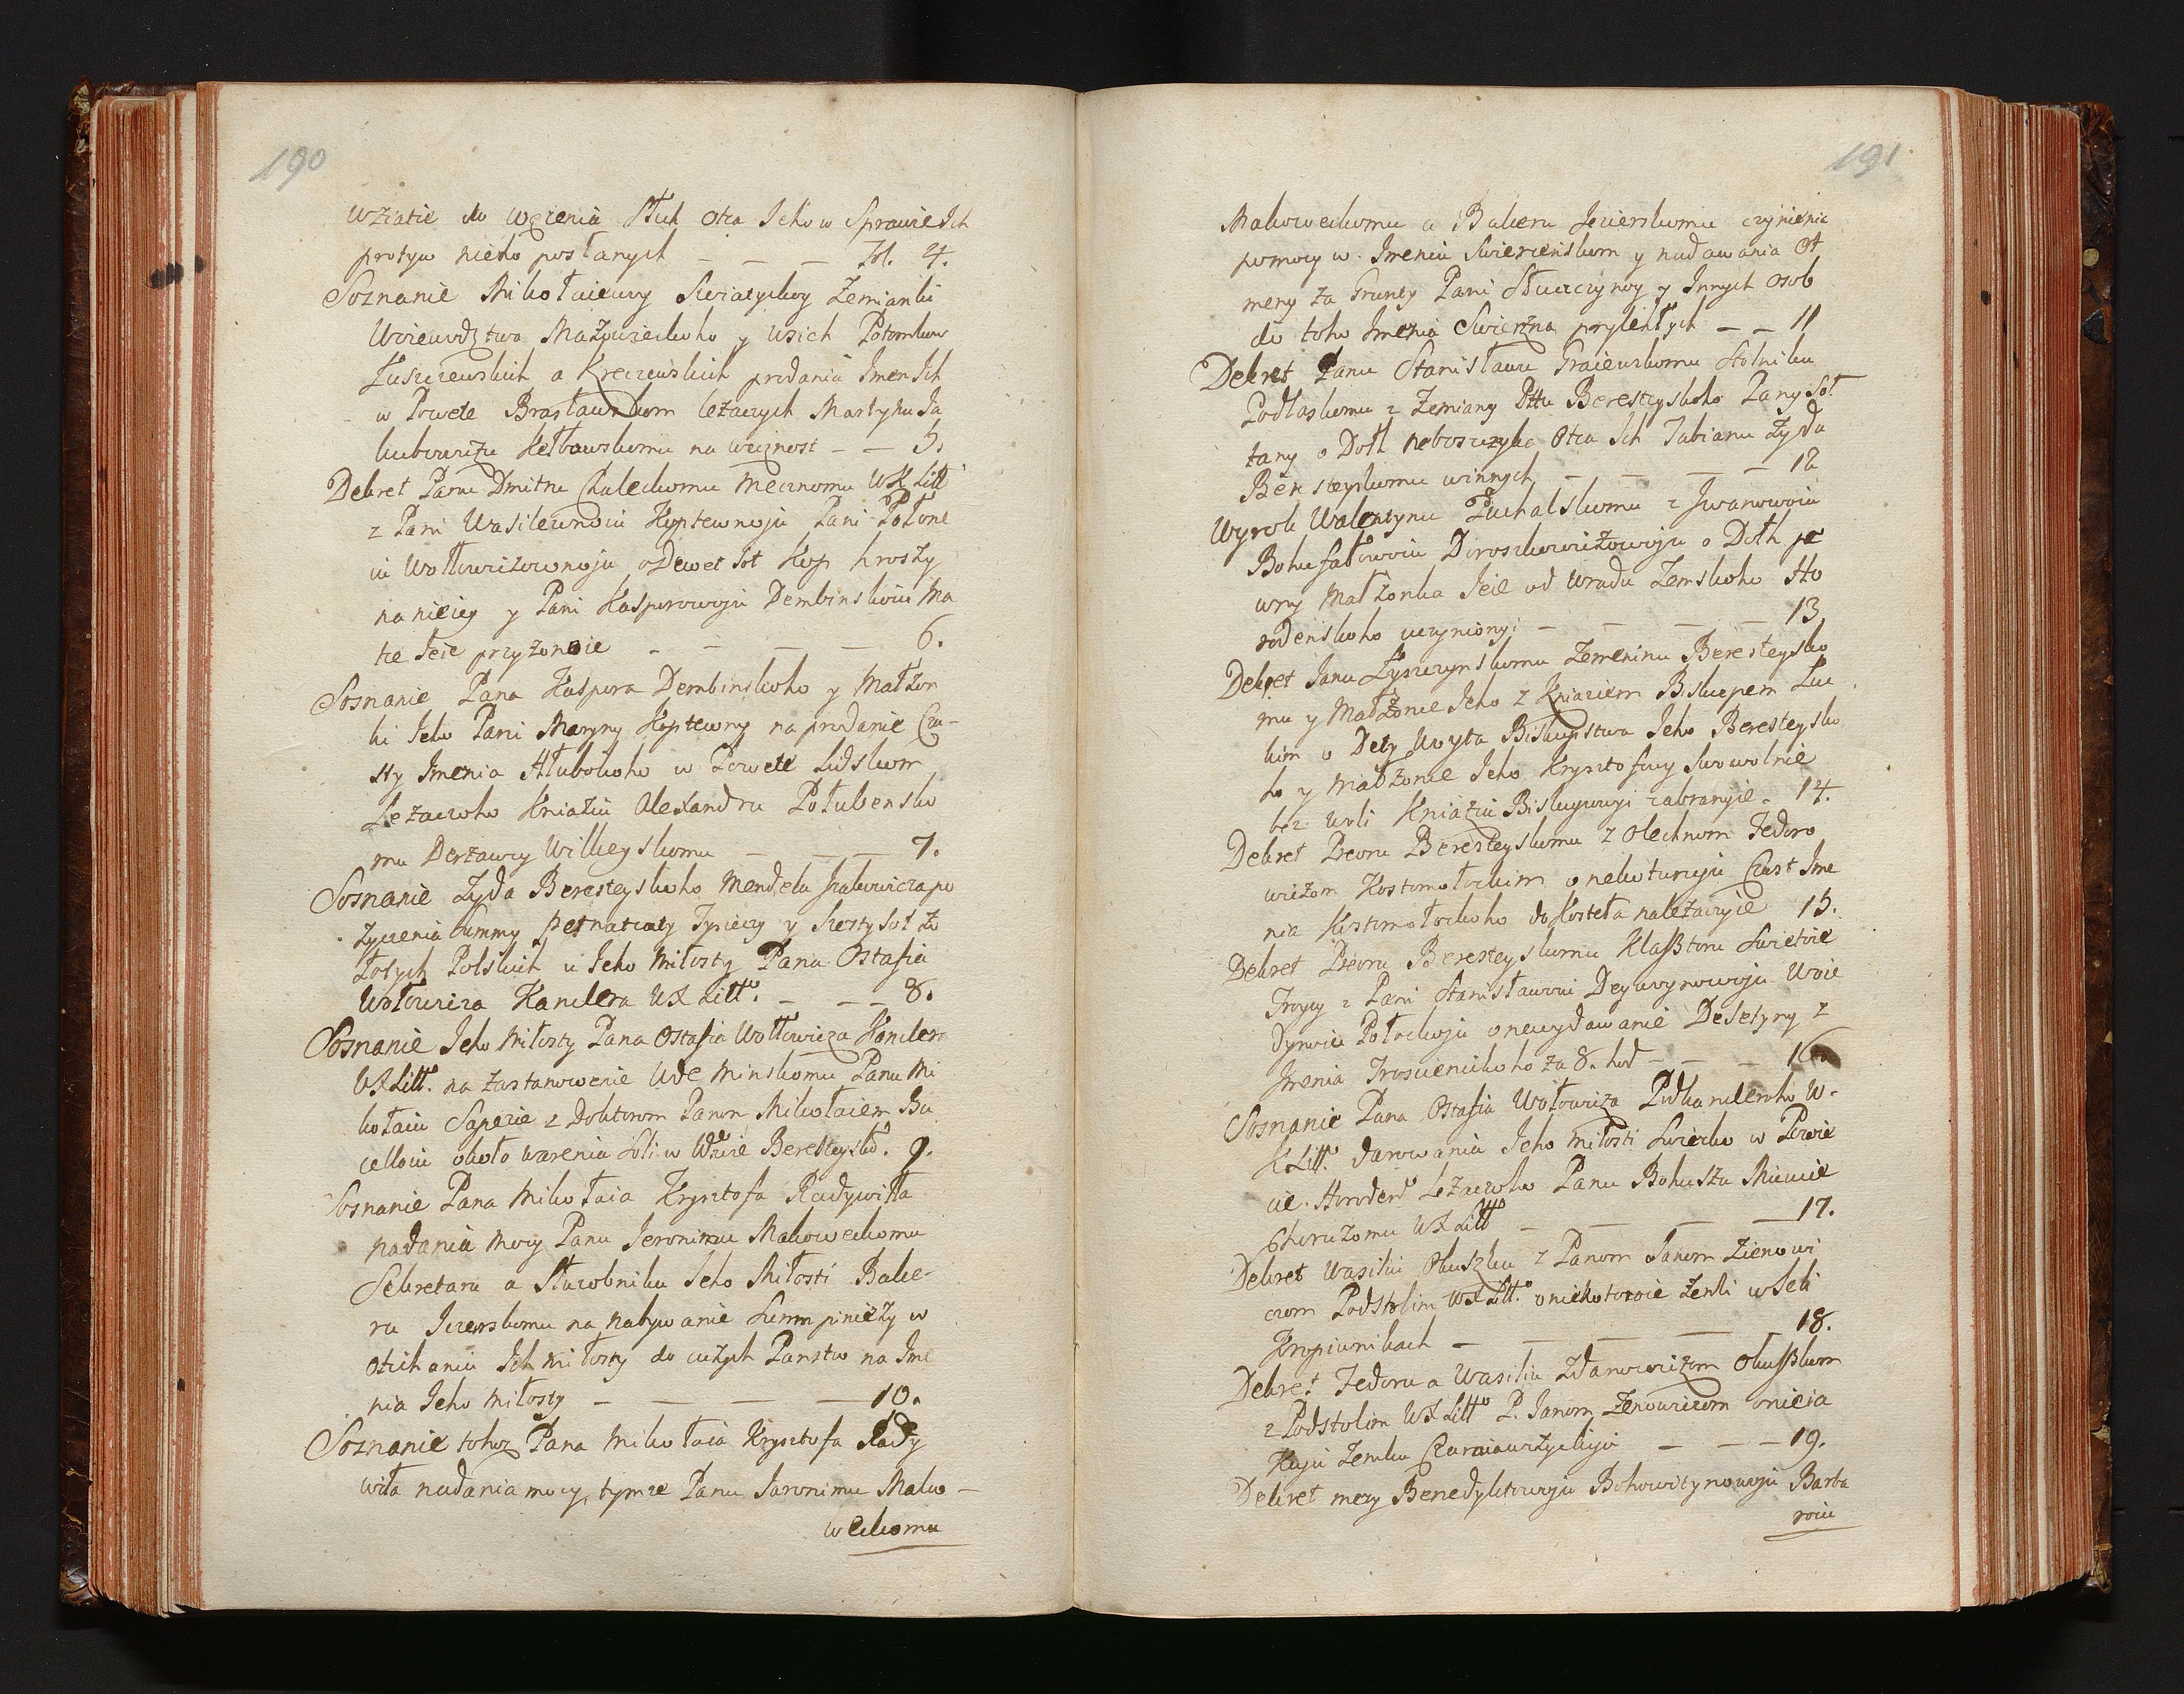 190
Wziatie do Węzenia Sług Otca Jeho w Sprawie Ich
protyw nieho posłanych — — — Fol. 4.
Soznanie Mikołaiewy Swiatyckoy Zemianki
Woiewodztwa Mazowieckoho y wsich Potomkow
Łuszczewskich a Kreczewskich prodania Imen Ich
w Powete Brasławskom leżaczych Martynu Ja
kubowiczu Kełbowskomu na wecznost — — 5.
Dekret Panu Dmitru Chaleckomu Mecznomu WX Litt
z Pani Wasilewnoiu Koptewnoju Pani Połone
iu Wołłowiczownoju o Dewet Sot Kop hroszy
na nieiey y Pani Kasporowoju Dembinskoiu Ma
tce Jeie pryzonoie — — — — 6.
Soznanie Pana Kaspora Dembinskoho y Małżon
ki Jeho Pani Maryny Koptewny na prodanie Cza-
sty Imenia Hłubokoho w Powete Lidskom
Leżaczoho Kniaziu Alexandru Połubensko
mu Derżawcy Wilkeyskomu — — — 7.
Soznanie Żyda Beresteyskoho Mendela Izakowicza po
życzenia Summy petnatcaty Tysiecy y Szesty Sot Zo
łotych Polskich u Jeho Miłosty Pana Ostafia
Wołowicza Kanclera WX Litto. — — — 8.
Soznanie Jeho Miłosty Pana Ostafia Wołłowicza Kanclera
WX Litt. na Zastanowenie Wde Minskomu Panu Mi
kołaiu Sapezie z Doktorom Panom Mikołaiem Bu
cellom około warenia Soli w Wdzie Beresteyskō. 9.
Soznanie Pana Mikołaia Krysztofa Radywiłła
nadania mocy Panu Jeronimu Makoweckomu
Sekretaru a Służebniku Jeho Miłosti Balce-
ru Jezerskomu na nabywanie Summ pinieży w
otichaniu Ich Miłosty do cużych Panstw na Ime
nia Jeho Miłosty — — — — 10.
Soznanie tohoż Pana Mikołaia Krysztofa Rady
wiła nadania mocy, tymże Panu Jaronimu Mako-
weckomu
191
Makoweckomu a Balceru Jezierskomu czynienie
pomocy w Imeniu Swierzenskom y nadawania Ot
meny za Grunty Pani Słuczczynoy y Innych Osob
do toho Imenia Swierżna prylehłych — — 11
Dekret Panu Stanisławu Graiewskomu Stolniku
Podlaskomu z Zemiany Pttu Beresteyskoho Pany Soł
tany o Dołh neboszczyka Otca Ich Fabianu Żydu
Beresteyskomu winnych — — — — 12
Wyrok Walentynu Puchalskomu z Iwanowoiu
Bohufałowoiu Doroszkowiczowoju o Dołh pe
wny Małżonka Jeie od Wradu Zemskoho Ho
rodenskoho uczyniony: — — — — 13
Dekret Janu Łyszczynskomu Zemeninu Beresteysko
mu y Małżonce Jeho z Kniaziem Biskupem Łuc
kim o Dety Woyta Biskupstwa Jeho Beresteysko
ho y Małżonce Jeho Krysztofowy Swowolnie
bez woli Kniaziu Biskupowyi zabranyie. 14.
Dekret Preoru Beresteyskomu z Olechnom Fedoro
wiczom Kostomołockim o nekoturuju Czast Ime
nia Kostomołockoho do Kosteła należaczyie 15.
Dekret Preoru Beresteyskomu Klasztoru Swietoie
Troycy z Pani Stanisławowi Deywynowoju Woie
dynoiu Połockoju o newydawanie Desetyny z
Imenia Trosczenickoho za 8. hod — — — 16.
Soznanie Pana Ostafia Wołowicza Podkanclerzeho W.
X. Litt. darowania Jeho Miłosti Swierko w Powie
cie Horodenō Leżaczoho Panu Bohuszu Miewie
Choruzomu WX Litto — — — — 17.
Dekret Wasiliu Okuszku z Panom Janom Zienowi
czom Podstolim WX Litto. o niekotoroie Zemli w Seli
Kropiwnikach — — — — 18.
Dekret Fedoru a Wasiliu Zdanowiczom Okuszkom
z Podstolim WX Litto P. Janom Zenowiczom o nieia
Kuju Zemlu Czerniawczyckuju — — — 19.
Dekret mezy Benedyktowoju Bohowitynowoju Barba
roiu